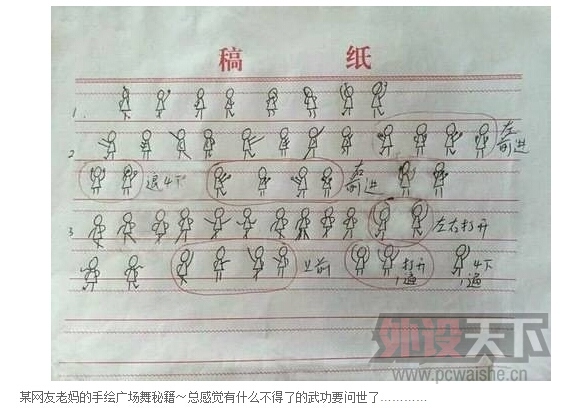 稿 纸
1.
2. 左前进
退4下 右前进
3. 左右打开
上前 打开1遍 4下1遍
外设天下
www.pcwaishe.cn
某网友老妈的手绘广场舞秘籍~总感觉有什么不得了的武功要问世了…………